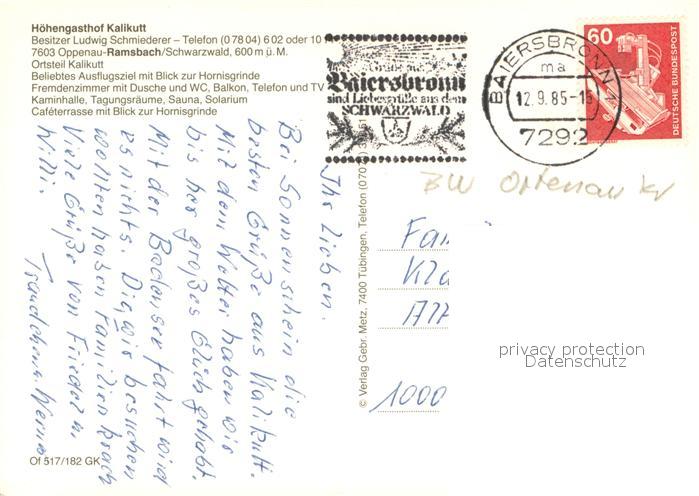 Höhengasthof Kalikutt
Besitzer Ludwig Schmiederer – Telefon (0 78 04) 6 02 oder 10
7603 Oppenau-Ramsbach/Schwarzwald, 600 m ü. M.
Ortsteil Kalikutt
Beliebtes Ausflugsziel mit Blick zur Hornisgrinde
Fremdenzimmer mit Dusche und WC, Balkon, Telefon und TV
Kaminhalle, Tagungsräume, Sauna, Solarium
Caféterrasse mit Blick zur Hornisgrinde
Grüße aus
Baiersbronn
sind Liebesgrüße aus dem
SCHWARZWALD
BAIERSBRONN
ma
12.9.85-15
7292
60
DEUTSCHE BUNDESPOST
BW Ortenau Kr
Ihr Lieben.
Bei Sonnenschein die
besten Grüße aus Kalikutt.
Mit dem Wetter haben wir
bis her großes Glück gehabt.
Mit der Bodenseefahrt wird
es nichts. Die wir besuchen
wollten haben Familien krach
Viele Grüße von Frieda u.
Willi.
Traudchen u. Werner
© Verlag Gebr. Metz, 7400 Tübingen, Telefon (070
Fam
Kla
Alt
1000
privacy protection
Datenschutz
Of 517/182 GK